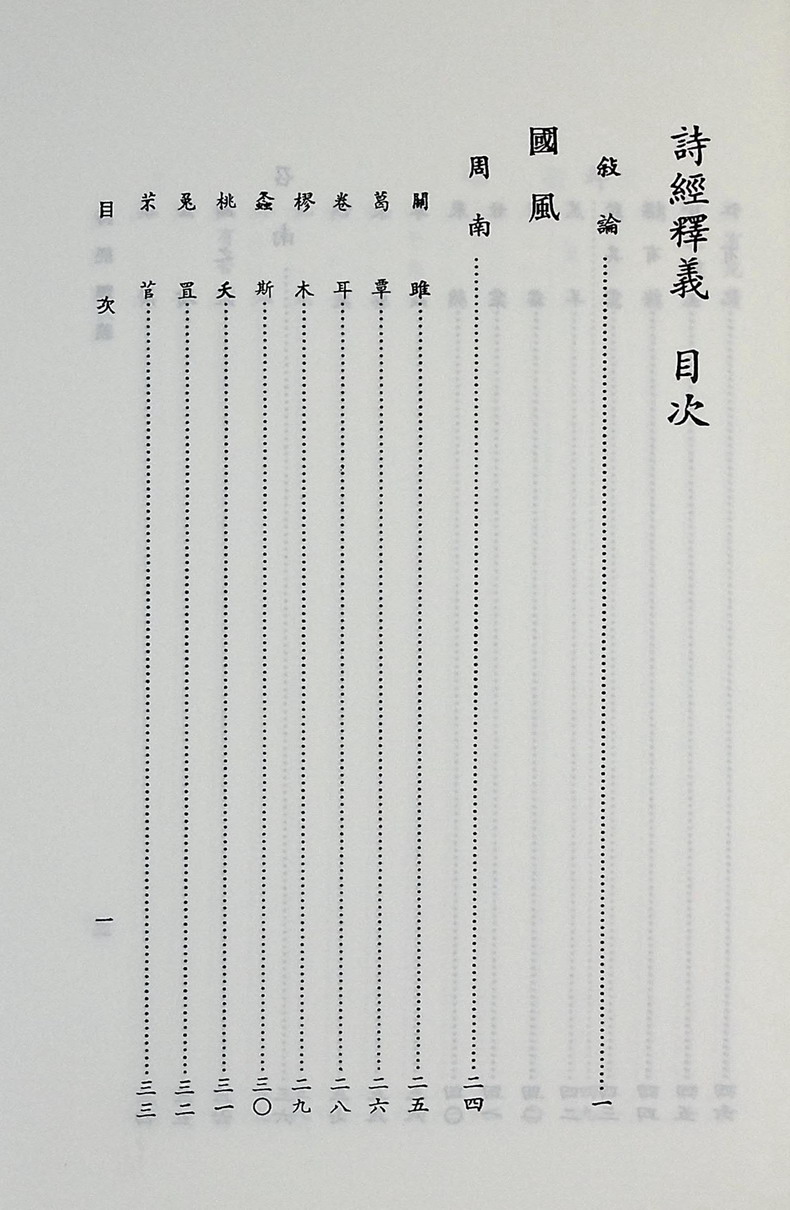 詩經釋義 目次
敍論……一
國風
周南……二四
關雎……二五
葛覃……二六
卷耳……二八
樛木……二九
螽斯……三〇
桃夭……三一
兎罝……三二
芣苢……三三
目次
一